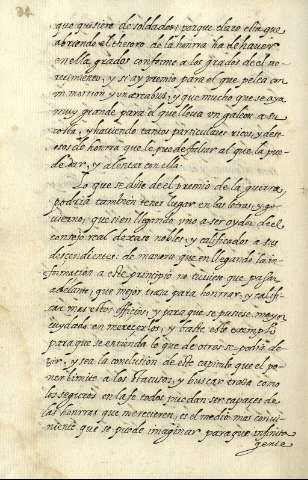 que quisiere de soldados; porque claro esta que
abriendo el thesoro de la honrra ha de hauer
en ella grados conforme a los grados de el me
recimiento, y si ay premio para el que pelea con
un morrion y un arcabuz, y que mucho que se aya
muy grande para el que lleua un galeon a su
costa, y hauiendo tantos particulares ricos, y des
seosos de honrra que le puede faltar al que la pue
de dar, y alentar con ella.
Lo que se dixo de el premio de la guerra,
podria tambien tener lugar en las letras, y go
uierno, que si en llegando uno a ser oydor de el
consejo real dexaxo nobles, y calificados a sus
descendientes: de manera que en llegando la in
formacion a este principio no tuuiese que pasar
adelante, que mejor traza para honrrar, y califi
car mas estos officios, y para que se pusiese mayor
cuydado en merecerlos, y baste este exemplo
para que se entienda lo que de otros se podia de
zir, y sea la conclusion de este capitulo que el po
ner limite a los Statutos, y buscar traza como
los seguros en la fe todos puedan ser capaces de
las honrras que merecieren, es el medio mas conue
niente que se puede imaginar para que infinita
gente